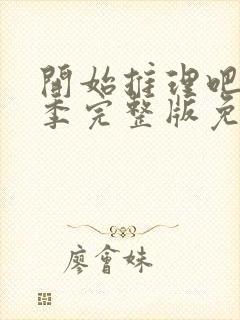 開始推理吧
季完整版免
廖會妹